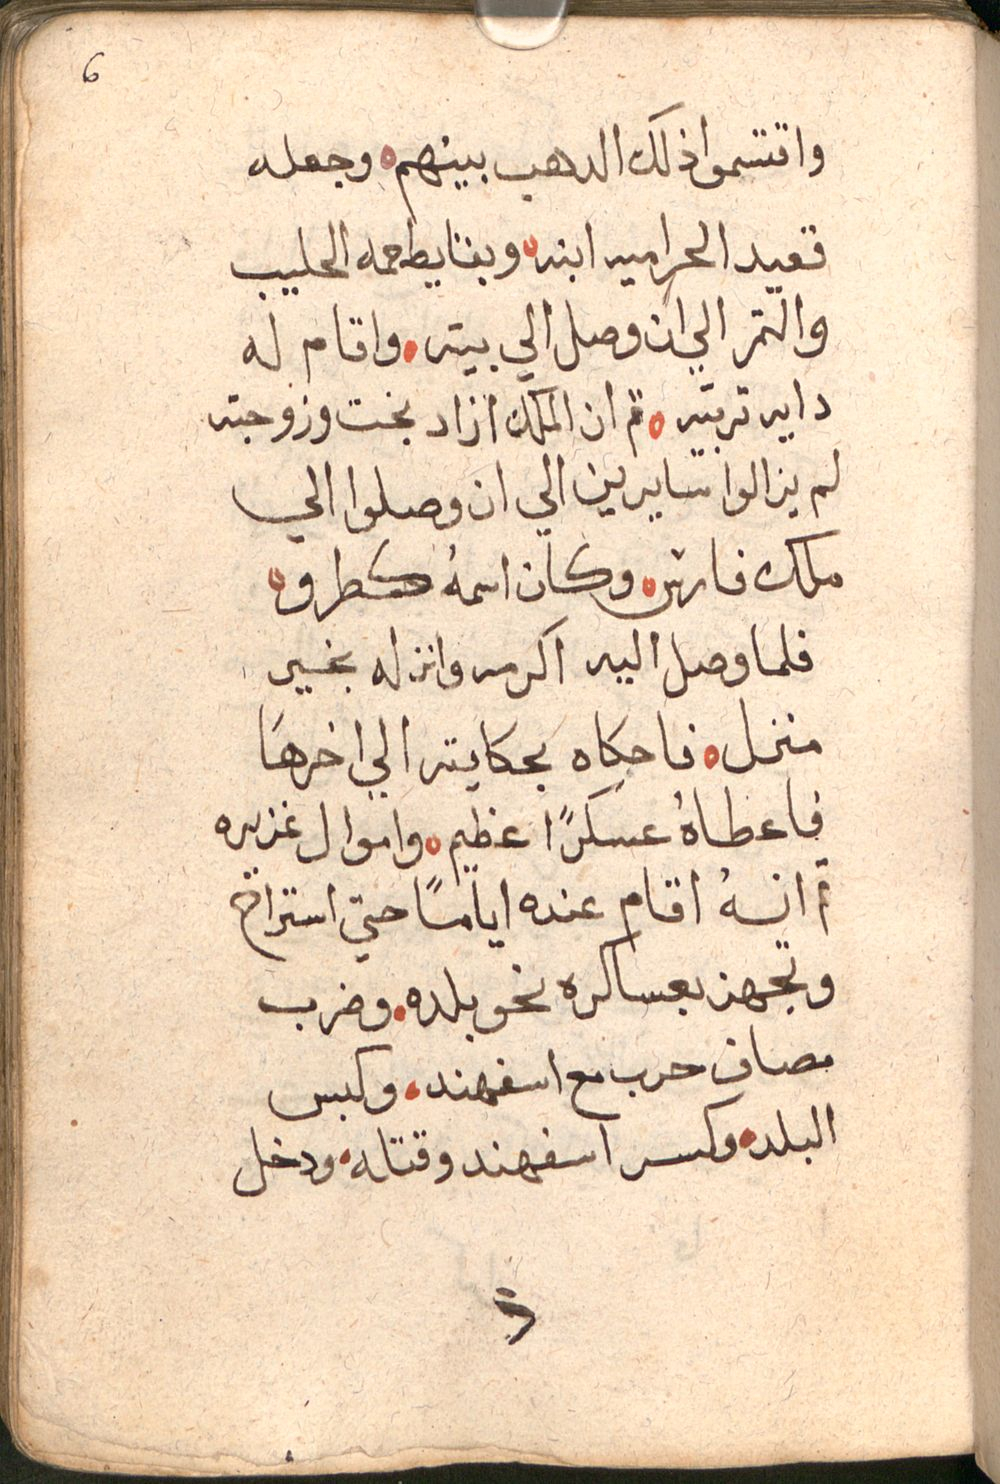 6
واقتسموا ذلك الدهب بينهم ه وجعله
قعيد الحراميه ابنه ه وبقا يطحمه الحليب
والتمر الي ان وصل الي بيته . واقام له
دايه تربيه ه تم ان الملك ازاد بخت وزوجته
لم يزالوا سايرين الي ان وصلوا الي
ملك فارس ه وكان اسمهُ كطرو ه
فلما وصل اليه اكرمه وانزله بخير
منزل ه فاحكاه بحكايته الي اخرها
فاعطاهُ عسكرًا عظيم ه واموال غزيره
تم انهُ اقام عنده ايامًا حتي استراح
وتجهز بعساكره نحو بلده . وضرب
مصاف حرب مع اسفهند . وكبس
البلد . وكسر اسفهند وقتله . ودخل